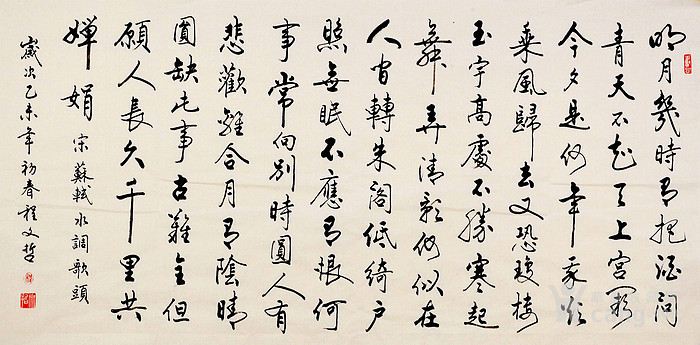 明月幾時有把酒問
青天不知天上宮闕
今夕是何年我欲
乘風歸去又恐瓊樓
玉宇高處不勝寒起
舞弄清影何似在
人間轉朱閣低綺戶
照無眠不應有恨何
事常向別時圓人有
悲歡離合月有陰晴
圓缺此事古難全但
願人長久千里共
嬋娟 宋蘇軾水調歌頭
歲次乙未年初春程文哲